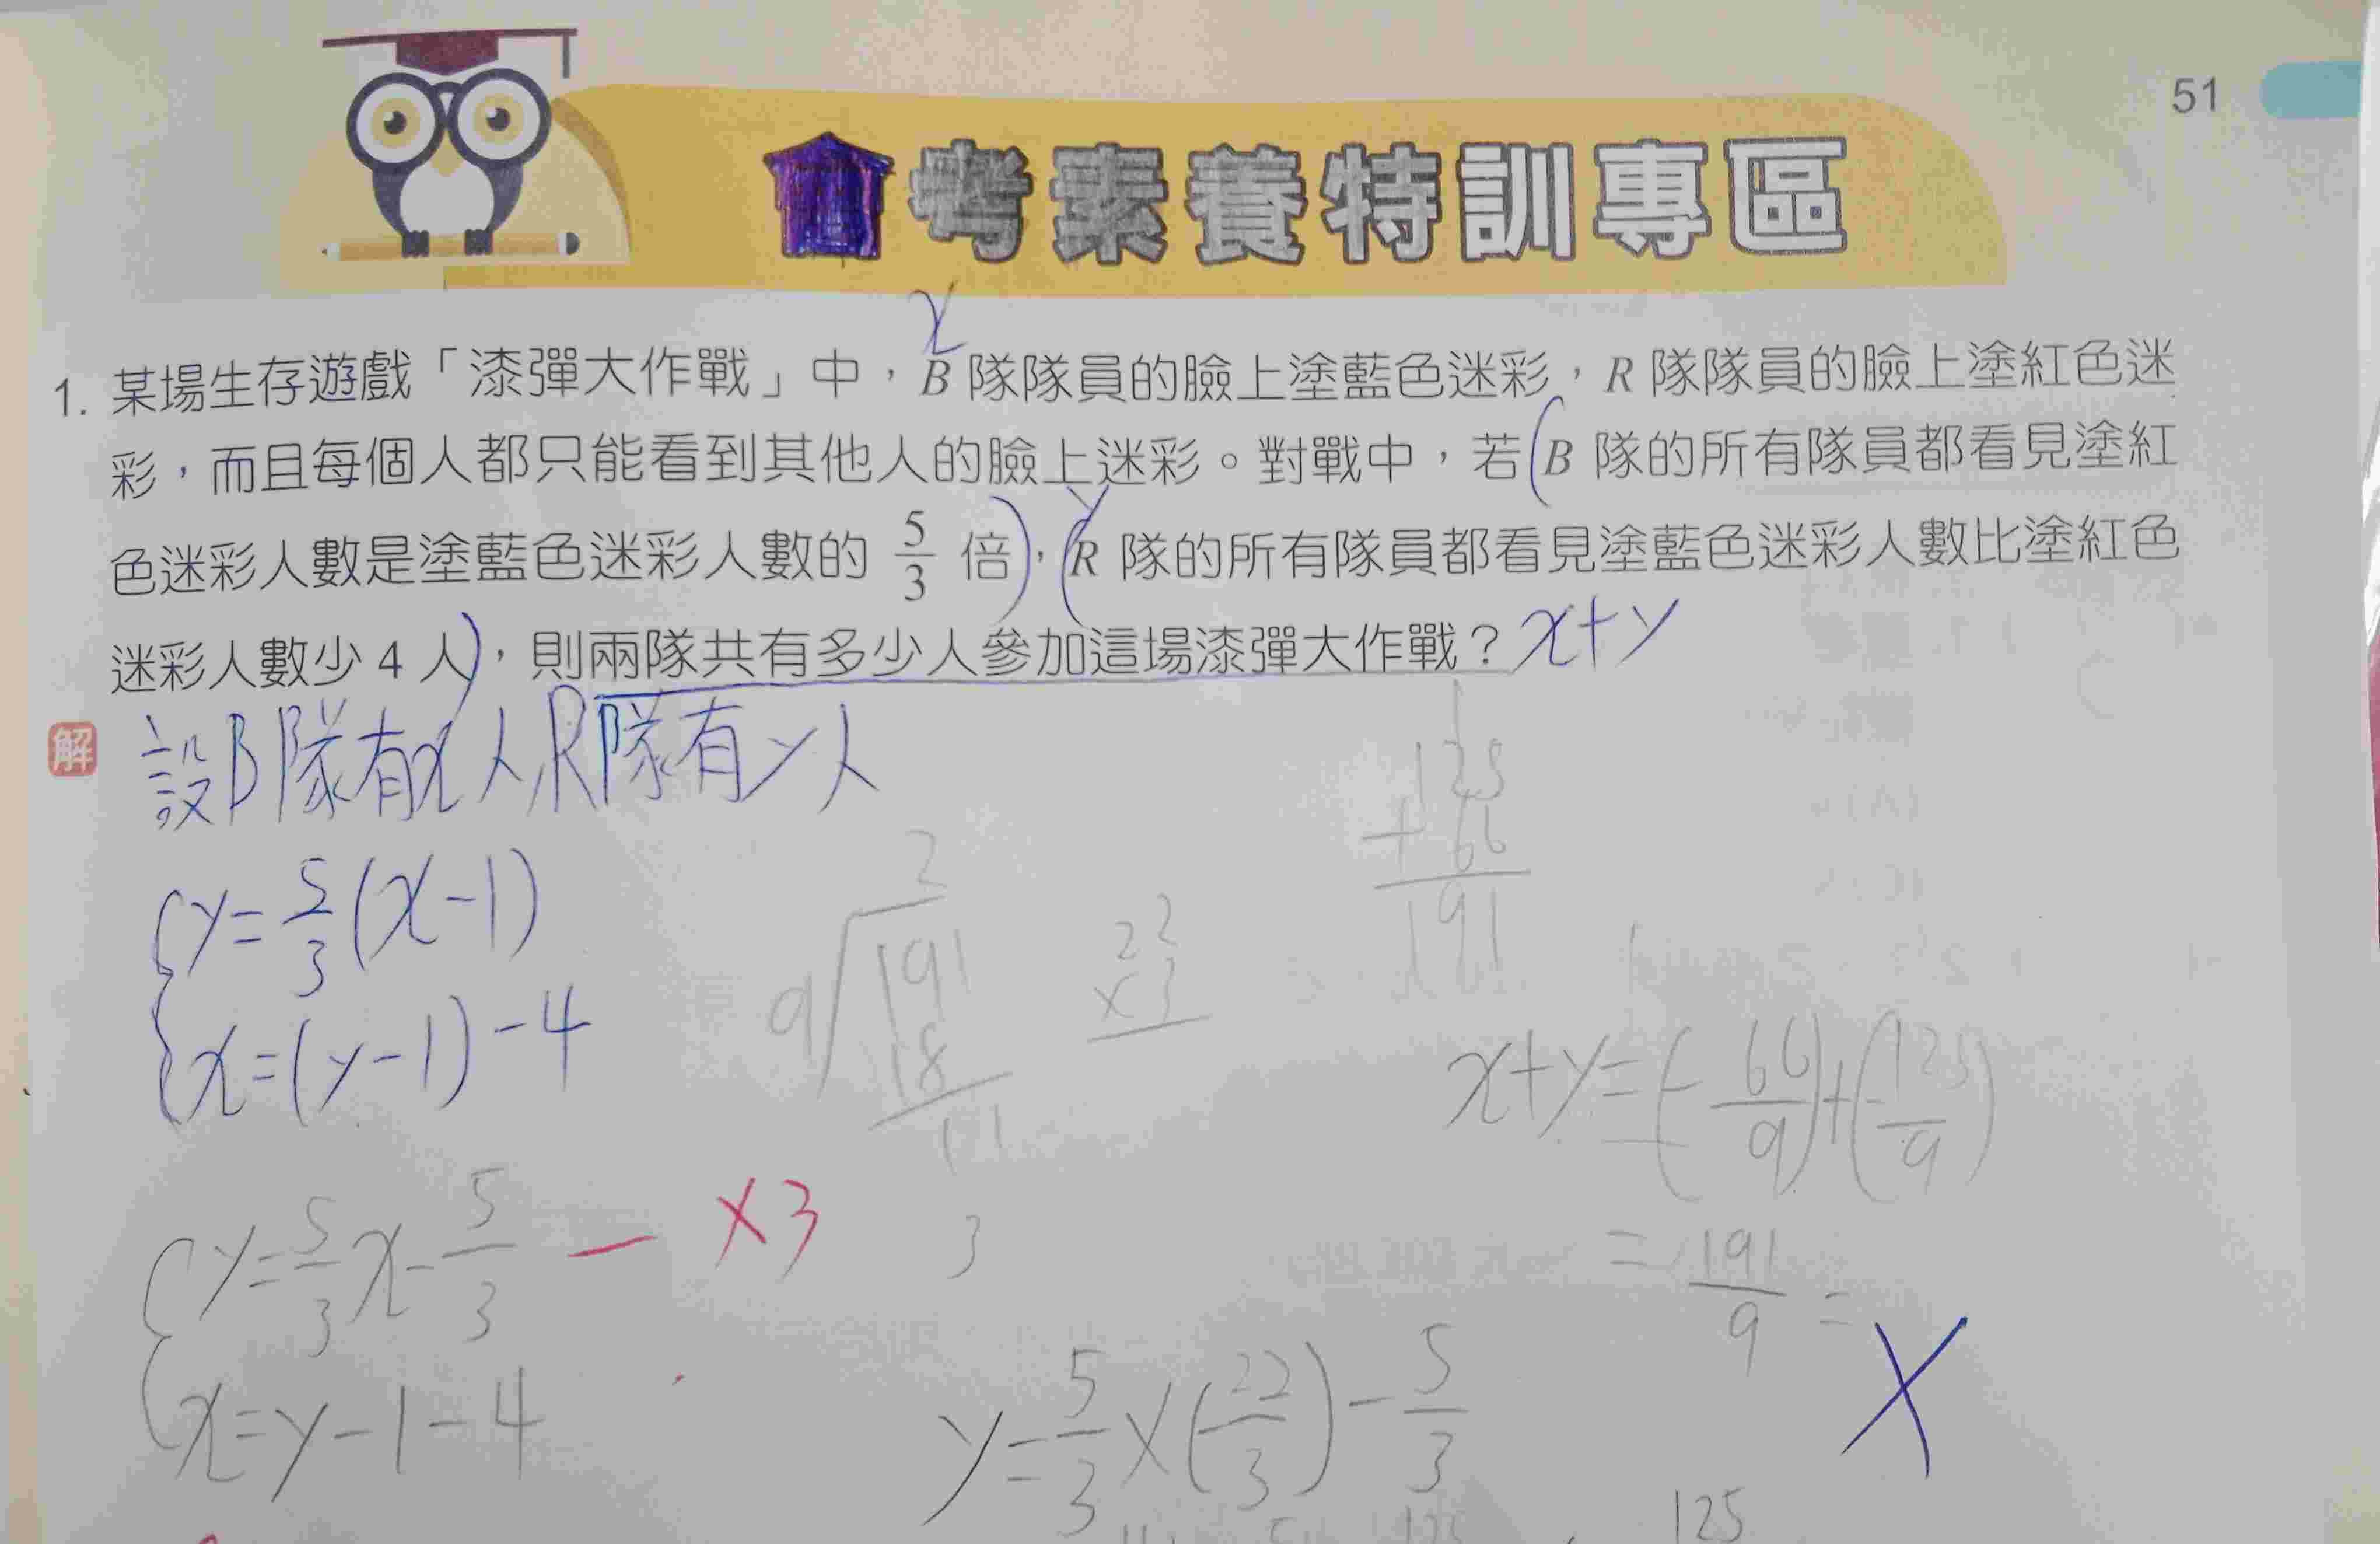 51
會考素養特訓專區
x
1. 某場生存遊戲「漆彈大作戰」中，B 隊隊員的臉上塗藍色迷彩，R 隊隊員的臉上塗紅色迷
彩，而且每個人都只能看到其他人的臉上迷彩。對戰中，若(B 隊的所有隊員都看見塗紅
y
色迷彩人數是塗藍色迷彩人數的 5/3 倍)，(R 隊的所有隊員都看見塗藍色迷彩人數比塗紅色
迷彩人數少 4 人)，則兩隊共有多少人參加這場漆彈大作戰？x+y
解 設B隊有x人,R隊有y人
{y=5/3(x-1)
{x=(y-1)-4
125
+ 66
191
2
9√191
18
11
22
×3
x+y=(-66/9)+(-125/9)
=191/9=
{y=5/3x-5/3 — ×3
3
{x=y-1-4
y=5/3×(22/3)-5/3
125